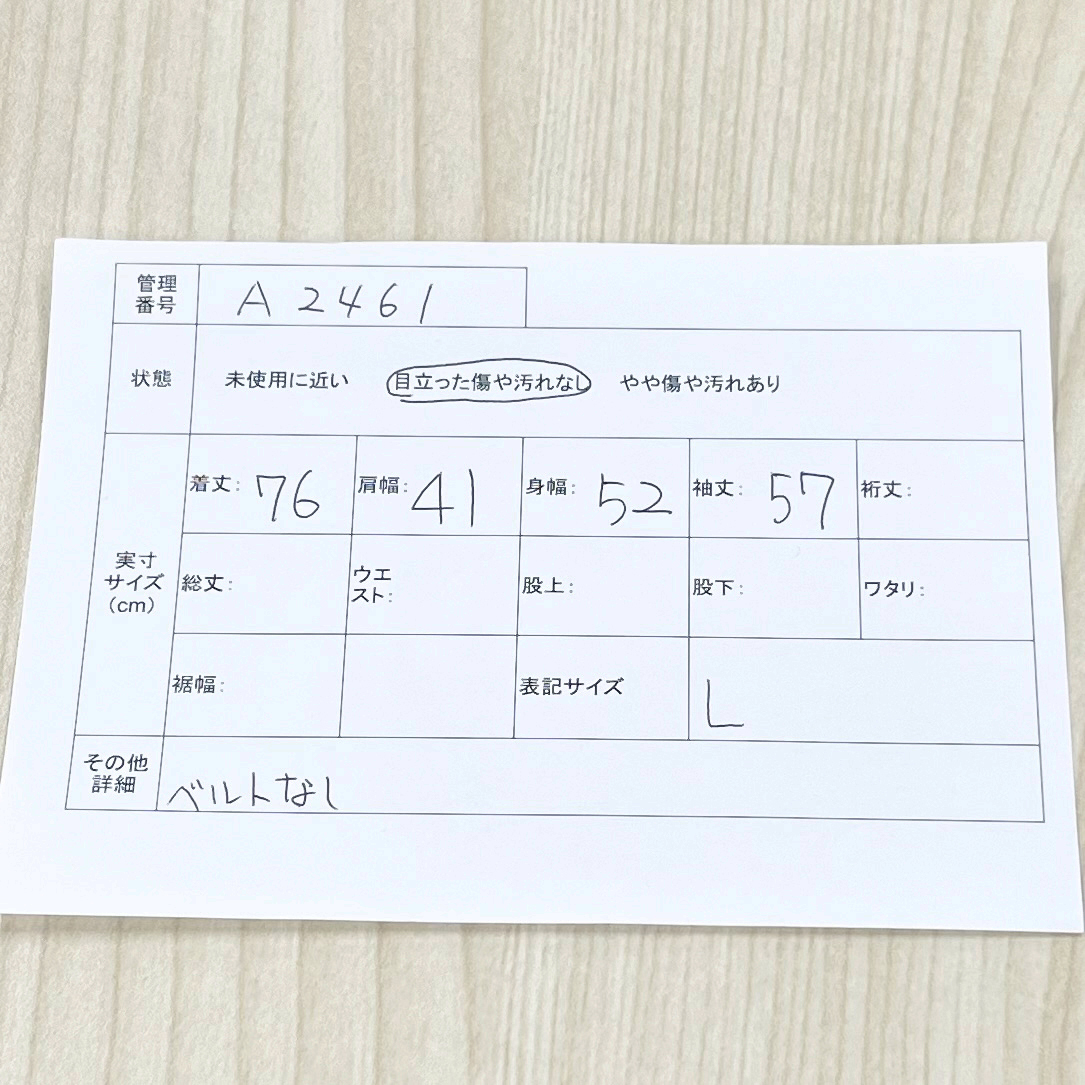 管理
番号
A2461
状態
未使用に近い 目立った傷や汚れなし やや傷や汚れあり
実寸
サイズ
(cm)
着丈: 76
肩幅: 41
身幅: 52
袖丈: 57
裄丈:
総丈:
ウエ
スト:
股上:
股下:
ワタリ:
裾幅:
表記サイズ
L
その他
詳細
ベルトなし